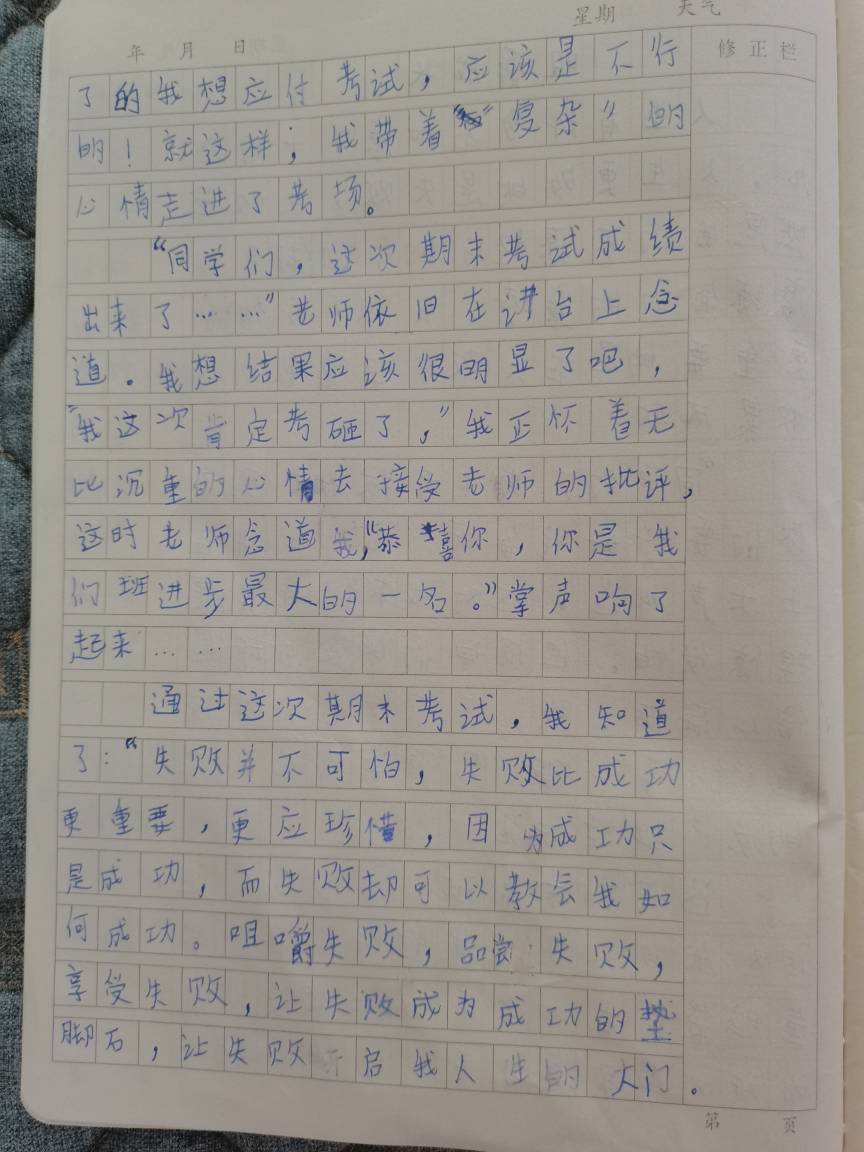 星期 天气
年 月 日 修正栏
了的我想应付考试，应该是不行
的！就这样；我带着“复杂”的
心情走进了考场。
“同学们，这次期末考试成绩
出来了……”老师依旧在讲台上念
道。我想结果应该很明显了吧，
“我这次肯定考砸了，”我正怀着无
比沉重的心情去接受老师的批评，
这时老师念道我，“恭嘻你，你是我
们班进步最大的一名。”掌声响了
起来……
通过这次期末考试，我知道
了：“失败并不可怕，失败比成功
更重要，更应珍惜，因为成功只
是成功，而失败却可以教会我如
何成功。咀嚼失败，品尝失败，
享受失败，让失败成为成功的垫
脚石，让失败开启我人生的大门。
第 页